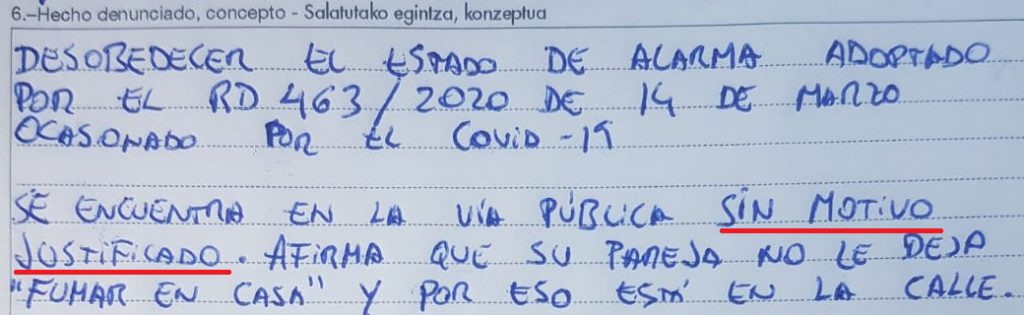 6.–Hecho denunciado, concepto - Salatutako egintza, konzeptua
DESOBEDECER EL ESTADO DE ALARMA ADOPTADO
POR EL RD 463/2020 DE 14 DE MARZO
OCASONADO POR EL COVID-19
SE ENCUENTRA EN LA VÍA PÚBLICA SIN MOTIVO
JUSTIFICADO. AFIRMA QUE SU PAREJA NO LE DEJA
"FUMAR EN CASA" Y POR ESO ESTÁ EN LA CALLE.